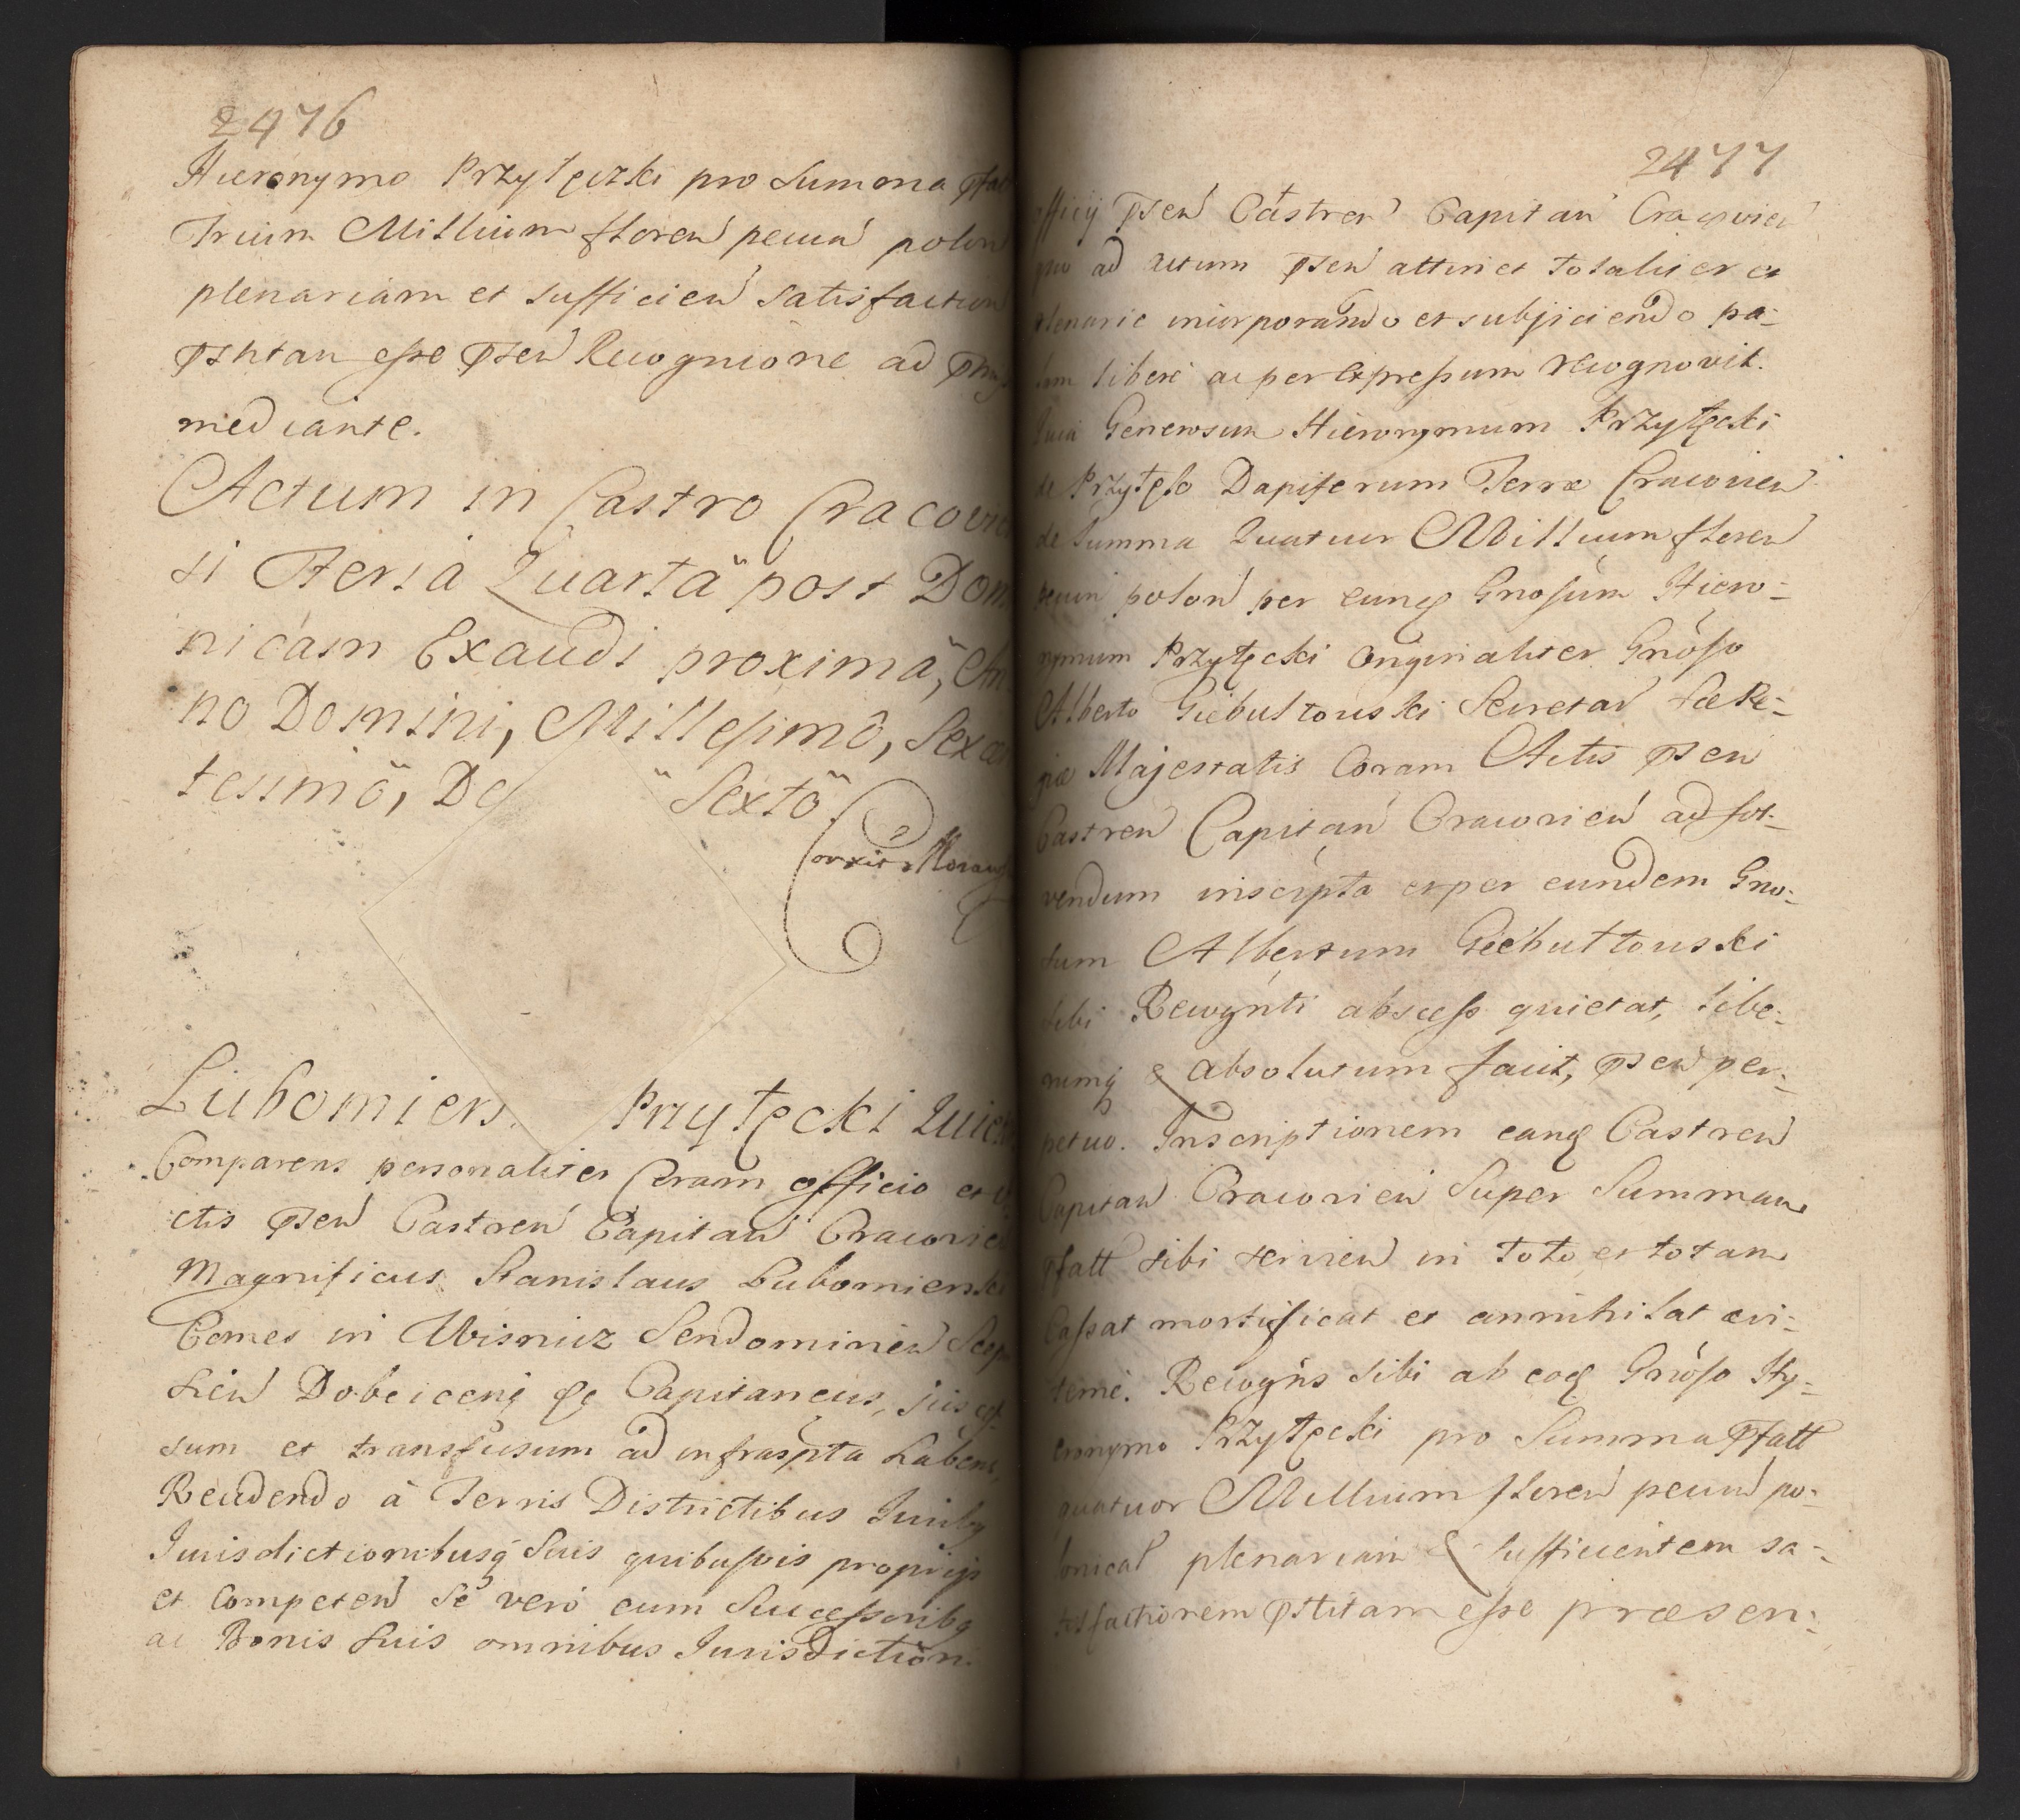 2476
Hieronymo Przyłęczki pro Summa
Trium Millium floren pecun polon
plenariam et sufficien satisfaction
esse Recognione ad
mediante.
Actum in Castro Cracovi
si Feria Quarta post Dom
nicam Exaudi proxima, An
no Domini, Millesimo, Sex
tesimo, De Sexto
Lubomiers. Przyłęcki Quie
Comparens personaliter Coram officio et
ctis Castren Capitan Cracovie
Magnificus Stanislaus Lubomierski
Comes in Wisnicz Sendomirien Scep
sien Dobcicenq Capitaneus, jus
sum et transfusum ad infraspta habens,
Recedendo à Terris Districtibus
Jurisdictionibusq Suis quibusvis proprijs
et Competen Se vero cum Successoribq
ac Bonis Suis omnibus Jurisdiction.
2477
officij Castren Capitan Cracovien
ad actum attinet Totaliter et
plenarie incorporando et subijciendo pa-
lam libere ac per expressum recognovit.
Quia Generosum Hieronymum Przyłęcki
de Przyłęk Dapiferum Terræ Cracovien
de Summa Quatuor Millium floren
pecun polon per eunq Gnosum Hiero-
nymum Przyłęcki originaliter Gnoso
Alberto Giebultouski Secretar Sæ Re-
giæ Majestatis Coram Actis
Castren Capitan Cracovien ad sol-
vendum inscripta et per eundem Gno-
sum Albertum Giebułtouski
sibi Recognti quietat, libe-
rumq & absolutum facit, per-
petuo. Inscriptionem eanq Castren
Capitan Cracovien Super Summam
sibi servien in toto et totam
Cassat mortificat et annihilat
Recogns sibi ab eoq Gnoso Hy-
eronymo Przyłęcki pro Summa
quatuor Millium floren pecun po-
lonical plenariam & sufficientem sa-
tisfactionem esse præsen-